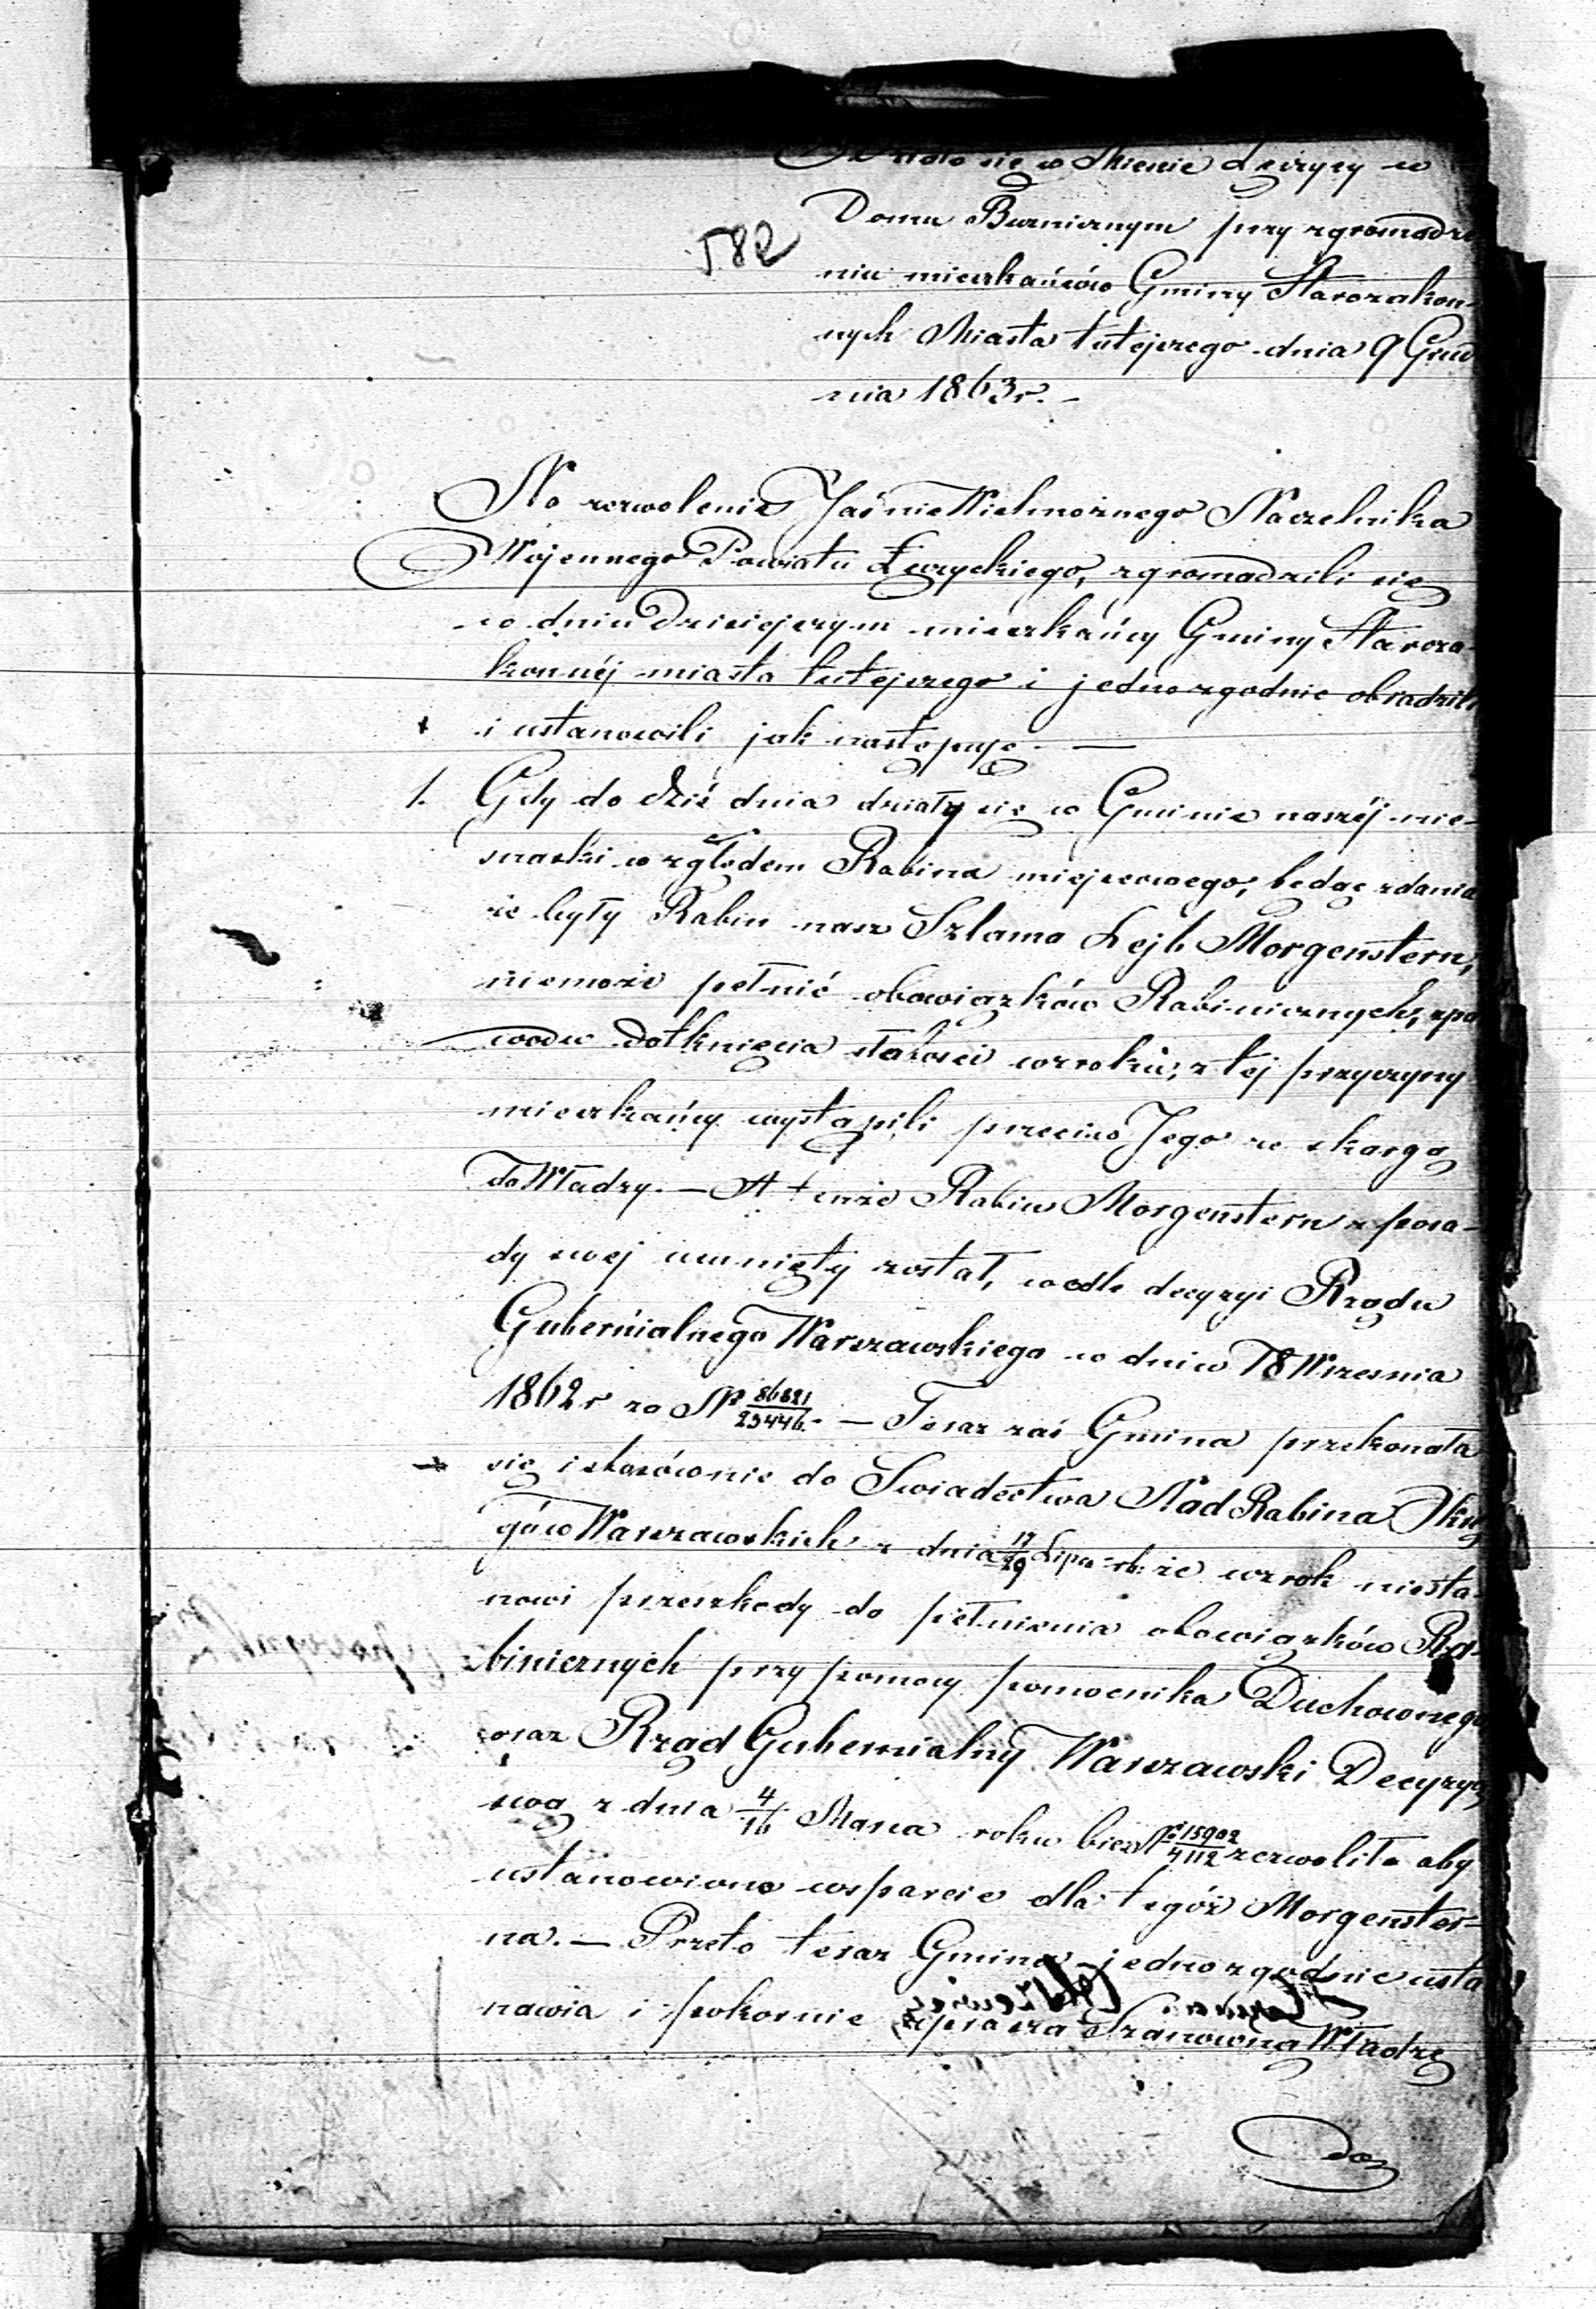 Działo się w Mieście Łęczycy w
Domu Burnicznym przy zgromadze
niu mieszkańców Gminy Starozakon-
nych Miasta tutejszego dnia 9 Grud
nia 1863 r. -
582
Na zezwolenie JaśnieWielmożnego Naczelnika
Wojennego Powiatu Łęczyckiego, zgromadzili się
w dniu dzisiejszym mieszkańcy Gminy Staroza-
konnéj miasta tutejszego i jednozgodnie obradzili
i ustanowili jak następuje. —
1. Gdy do dziś dnia działy się w Gminie naszéj nie-
snaski względem Rabina miejscowego, będąc zdania
że były Rabin nasz Szlama Lejb Morgenstern,
niemoże pełnić obowiązków Rabinicznych, z po
wodu dotknięcia słabości wzroku, z tej przyczyny
mieszkańcy wystąpili przeciw Jego ze skargą
do Władzy. — A tenże Rabin Morgenstern z posa-
dy swej usunięty został, wedle decyzyi Rządu
Gubernialnego Warszawskiego w dniu 18 Wrzesnia
1862 r za Nr 86621/23446. — Teraz zaś Gmina przekonała
się i stosównie do Swiadectwa Nad Rabina Okrę
gów Warszawskich z dnia 17/29 Lipca rb: że wzrok niesta-
nowi przeszkody do pełnienia obowiązków Ra-
binicznych przy pomocy pomocnika Duchownego
oraz Rząd Gubernialny Warszawski Decyzyą
swą z dnia 4/16 Marca roku bież Nr 15902/4112 zezwolił aby
ustanowiono wsparcie dla tegóż Morgenster-
na. — Przeto teraz Gmina jednozgodnie usta
nawia i pokornie uprasza Szanowną Władzę
do